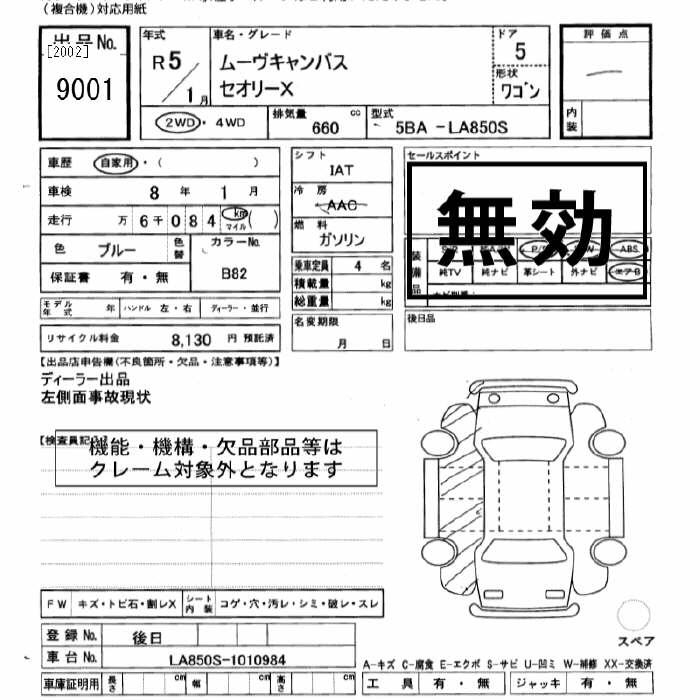 (複合機)対応用紙
出品No.
[2002]
9001
年式
R5/1月
車名・グレード
ムーヴキャンバス
セオリーX
ドア
5
形状
ワゴン
評価点
内装
2WD・4WD
排気量 660 cc
型式 5BA-LA850S
車歴 自家用・( )
車検 8年 1月
走行 万 6千 0 8 4 km マイル ( )
色 ブルー
色替
カラーNo.
B82
保証書 有・無
モデル年式 年 ハンドル 左・右 ディーラー・並行
リサイクル料金 8,130 円 預託済
シフト
IAT
冷房
AAC
燃料
ガソリン
乗車定員 4 名
積載量 kg
総重量 kg
名変期限
月 日
セールスポイント
無効
装備品
ABS
純TV 純ナビ 革シート 外ナビ エアB
後日品
【出品店申告欄(不良箇所・欠品・注意事項等)】
ディーラー出品
左側面事故現状
【検査員記入】
機能・機構・欠品部品等は
クレーム対象外となります
FW キズ・トビ石・割レX シート内装 コゲ・穴・汚レ・シミ・破レ・スレ
登録No. 後日
車台No. LA850S-1010984
車庫証明用 長さ cm 幅 cm 高さ cm
スペア
A-キズ C-腐食 E-エクボ S-サビ U-凹ミ W-補修 XX-交換済
工具 有・無 ジャッキ 有・無